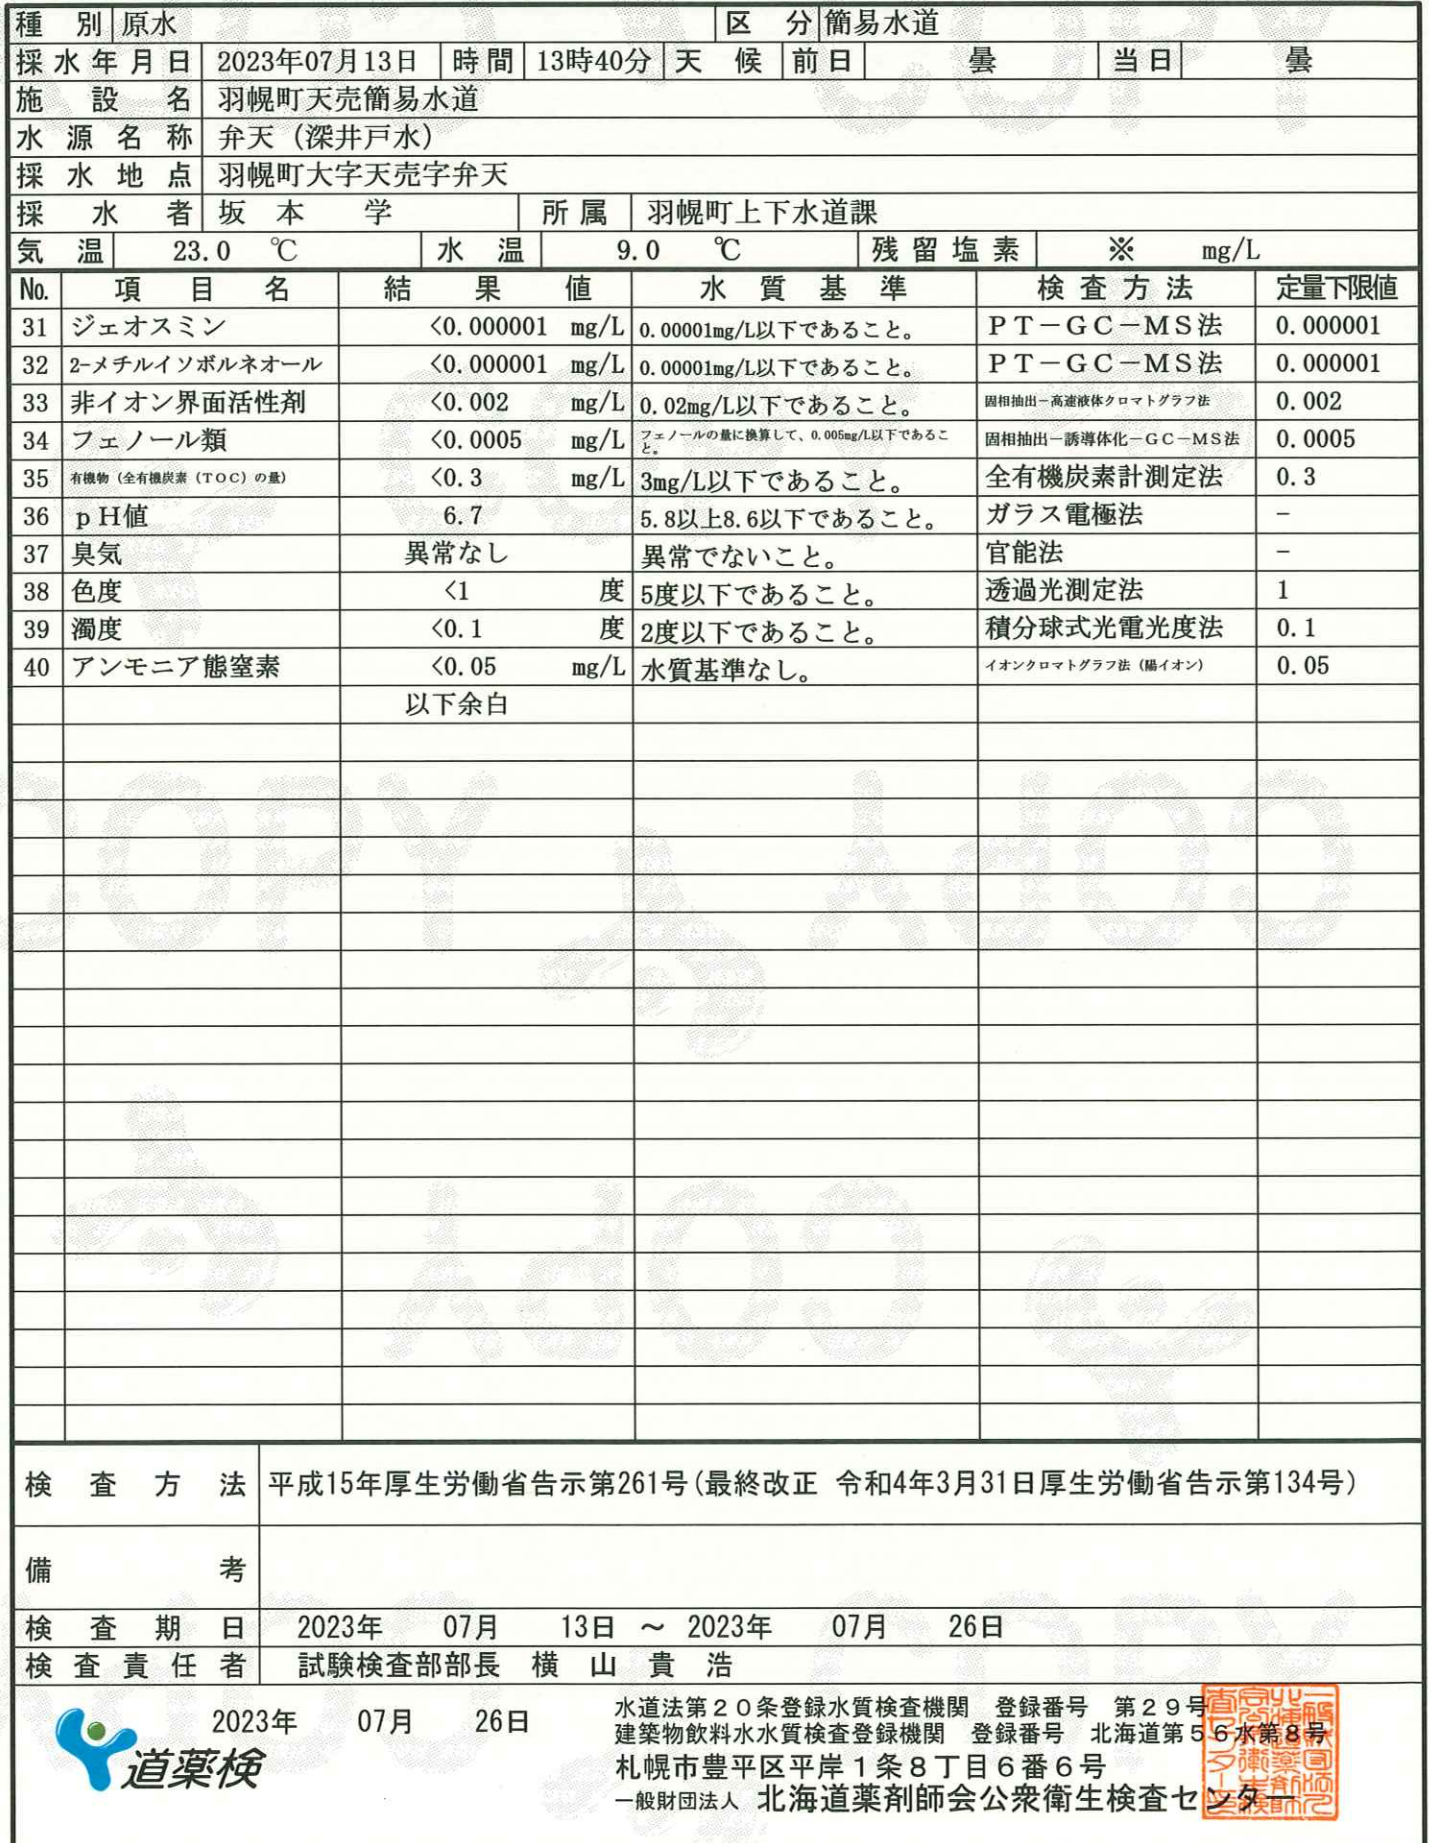 種別 原水 区分 簡易水道
採水年月日 2023年07月13日 時間 13時40分 天候 前日 曇 当日 曇
施設名 羽幌町天売簡易水道
水源名称 弁天（深井戸水）
採水地点 羽幌町大字天売字弁天
採水者 坂本 学 所属 羽幌町上下水道課
気温 23.0 ℃ 水温 9.0 ℃ 残留塩素 ※ mg/L
No. 項目名 結果値 水質基準 検査方法 定量下限値
31 ジェオスミン <0.000001 mg/L 0.00001mg/L以下であること。 ＰＴ－ＧＣ－ＭＳ法 0.000001
32 2-メチルイソボルネオール <0.000001 mg/L 0.00001mg/L以下であること。 ＰＴ－ＧＣ－ＭＳ法 0.000001
33 非イオン界面活性剤 <0.002 mg/L 0.02mg/L以下であること。 固相抽出－高速液体クロマトグラフ法 0.002
34 フェノール類 <0.0005 mg/L フェノールの量に換算して、0.005mg/L以下であること。 固相抽出－誘導体化－ＧＣ－ＭＳ法 0.0005
35 有機物（全有機炭素（ＴＯＣ）の量） <0.3 mg/L 3mg/L以下であること。 全有機炭素計測定法 0.3
36 ｐＨ値 6.7 5.8以上8.6以下であること。 ガラス電極法 −
37 臭気 異常なし 異常でないこと。 官能法 −
38 色度 <1 度 5度以下であること。 透過光測定法 1
39 濁度 <0.1 度 2度以下であること。 積分球式光電光度法 0.1
40 アンモニア態窒素 <0.05 mg/L 水質基準なし。 イオンクロマトグラフ法（陽イオン） 0.05
以下余白
検査方法 平成15年厚生労働省告示第261号(最終改正 令和4年3月31日厚生労働省告示第134号)
備考
検査期日 2023年 07月 13日 ～ 2023年 07月 26日
検査責任者 試験検査部部長 横山貴浩
2023年 07月 26日
道薬検
水道法第２０条登録水質検査機関 登録番号 第２９号
建築物飲料水水質検査登録機関 登録番号 北海道第５６水第８号
札幌市豊平区平岸１条８丁目６番６号
一般財団法人 北海道薬剤師会公衆衛生検査センター
COPY
COPY
COPY
COPY
COPY